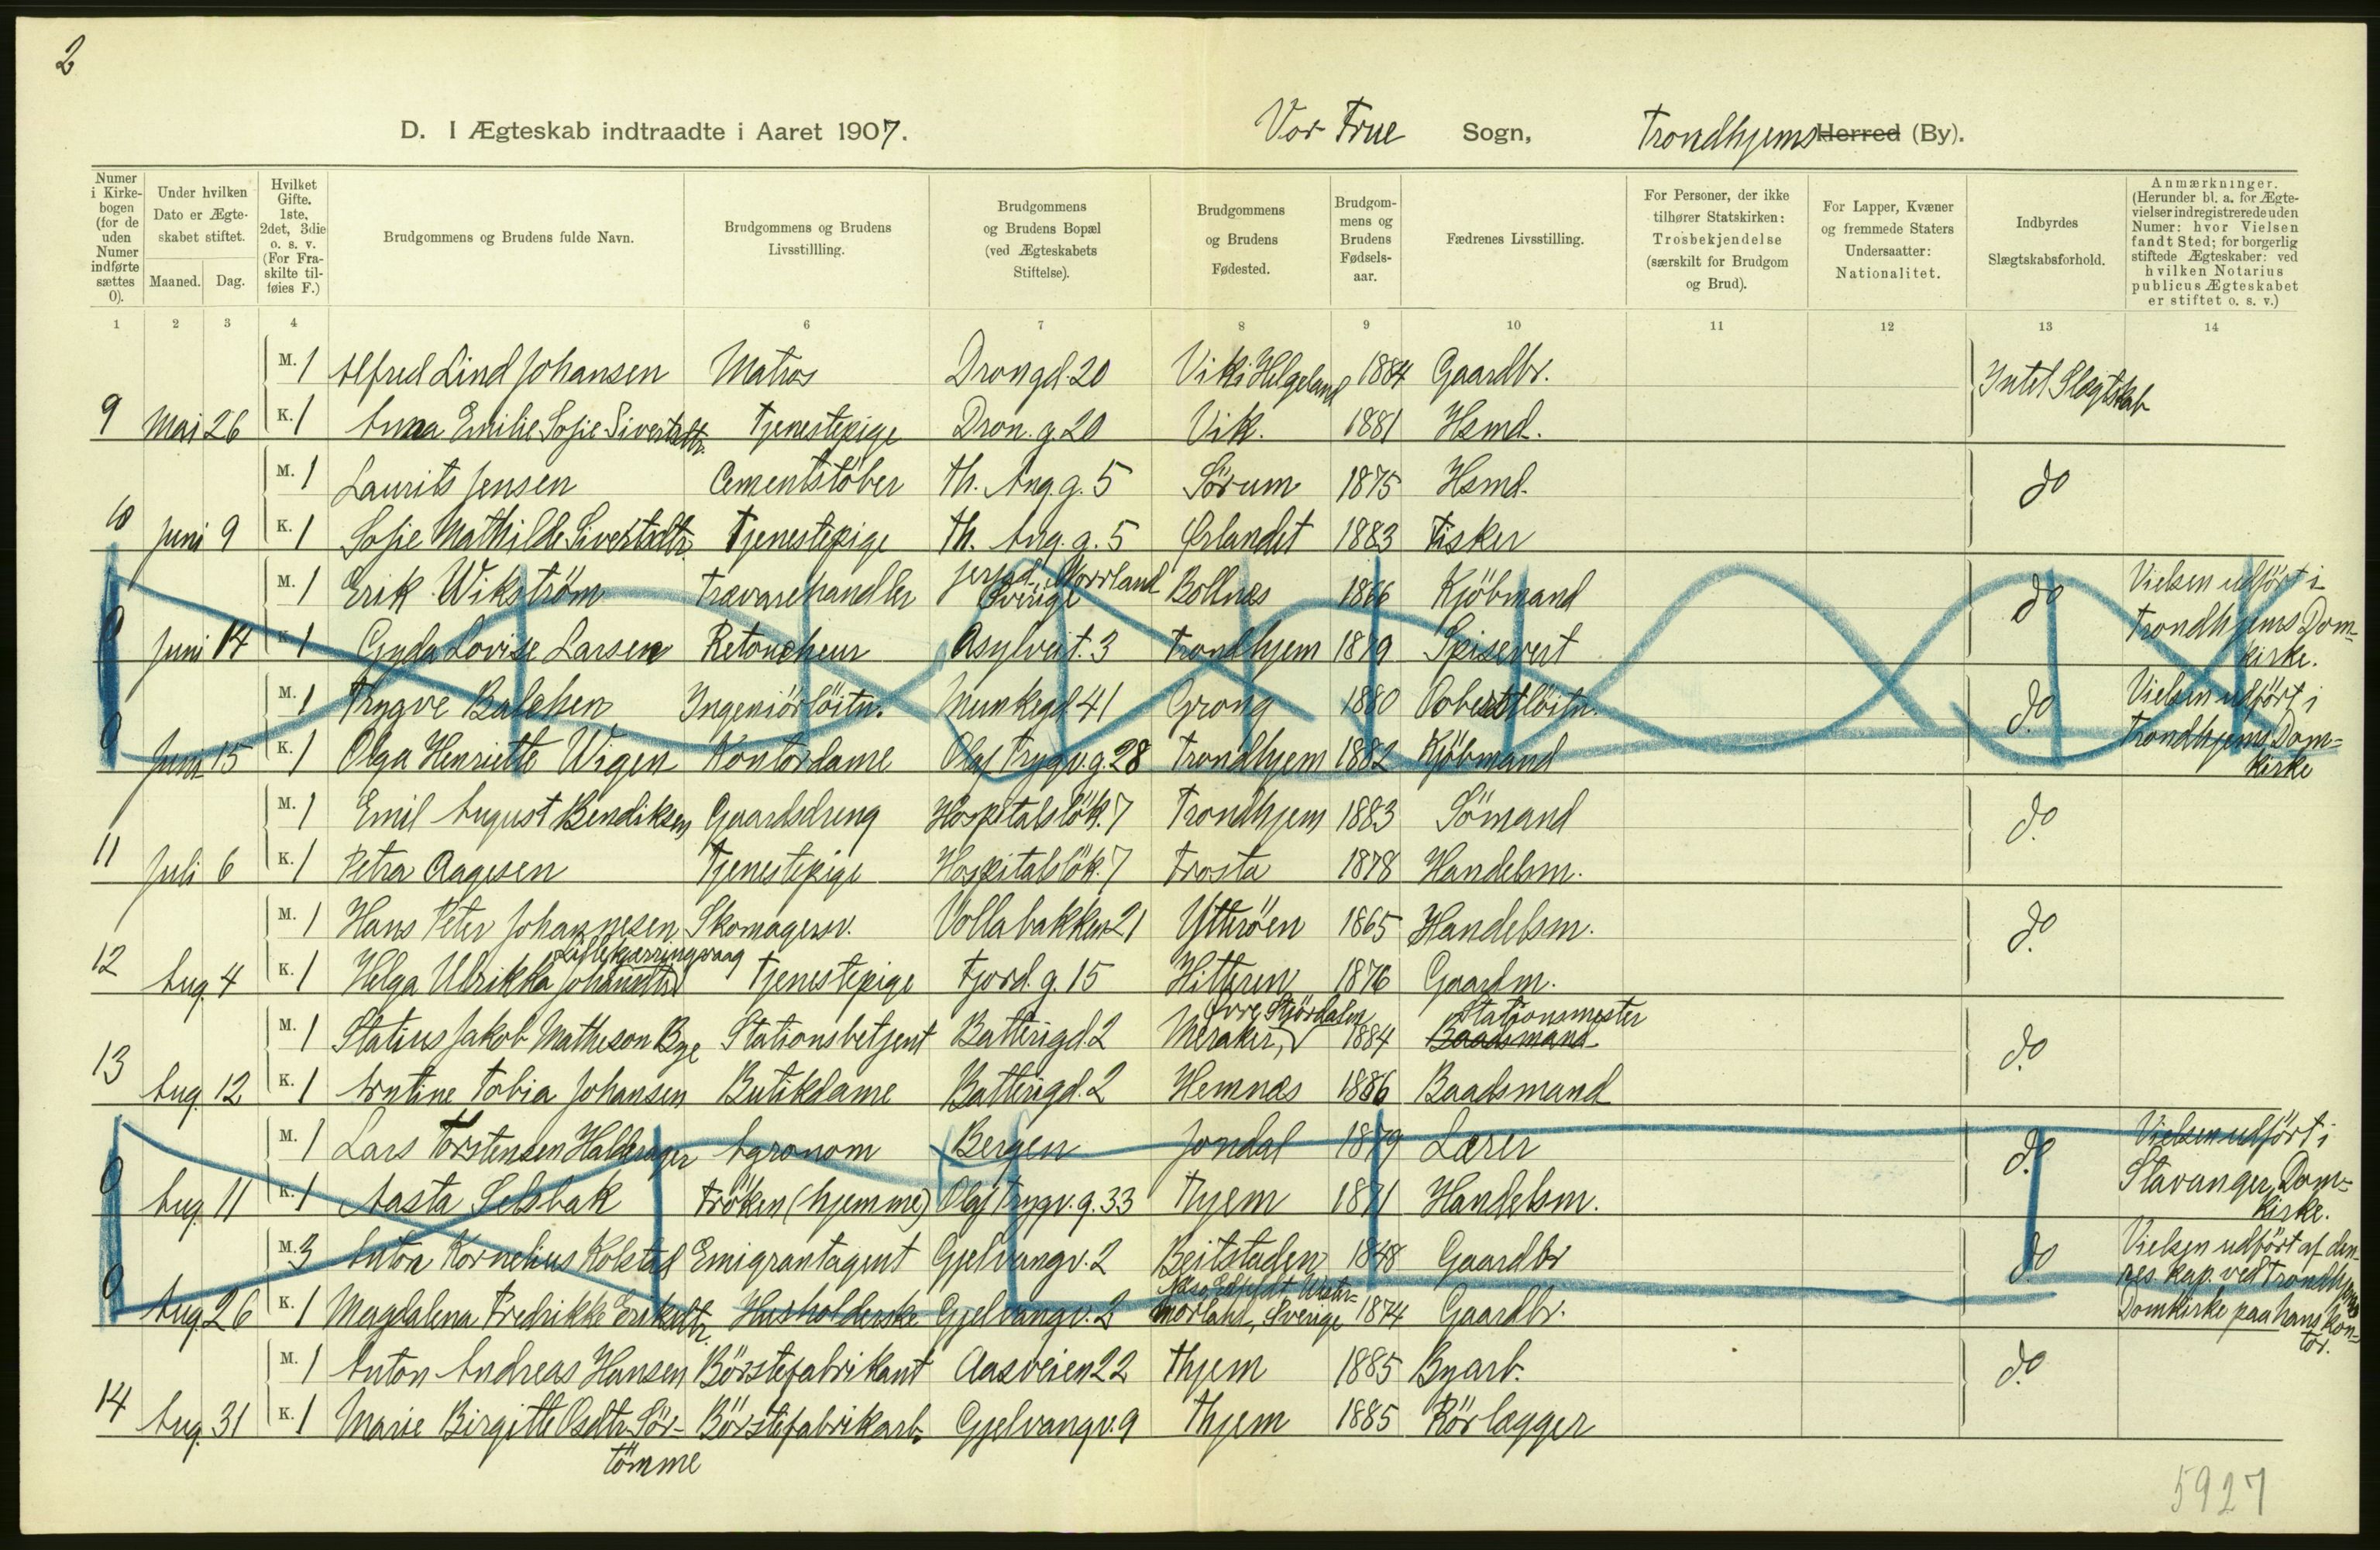 2
D. I Ægteskab indtraadte i Aaret 1907. Vor Frue Sogn, Trondhjems Herred (By).
Numer i Kirkebogen (for de uden Numer indførte sættes 0). Under hvilken Dato er Ægteskabet stiftet. Maaned. Dag. Hvilket Gifte. 1ste, 2det, 3die o. s. v. (For Fraskilte tilføies F.) Brudgommens og Brudens fulde Navn. Brudgommens og Brudens Livsstillling. Brudgommens og Brudens Bopæl (ved Ægteskabets Stiftelse). Brudgommens og Brudens Fødested. Brudgommens og Brudens Fødselsaar. Fædrenes Livsstilling. For Personer, der ikke tilhører Statskirken: Trosbekjendelse (særskilt for Brudgom og Brud). For Lapper, Kvæner og fremmede Staters Undersaatter: Nationalitet. Indbyrdes Slægtskabsforhold. Anmærkninger. (Herunder bl. a. for Ægtevielser indregistrerede uden Numer: hvor Vielsen fandt Sted; for borgerlig stiftede Ægteskaber: ved hvilken Notarius publicus Ægteskabet er stiftet o. s. v.)
1 2 3 4 6 7 8 9 10 11 12 13 14
M. 1 Alfred Lind Johansen Matros Drongd. 20 Vik i Helgeland 1884 Gaardbr. Intet Slægtskab
9 Mai 26 K. 1 Anna Emilie Sofie Sivertsdtr. Tjenestepige Dron. g. 20 Vik. 1881 Hsmd.
M. 1 Laurits Jensen Cementstöber Th. Ang. g. 5 Sörum 1875 Hsmd. do
10 Juni 9 K. 1 Sofie Mathilde Sivertsdtr. Tjenestepige Th. Ang. g. 5 Ørlandet 1883 Fisker
M. 1 Erik Wikström Trævarehandler Norrland Sverige Bollnæs 1866 Kjöbmand do Vielsen udfört i
0 Juni 14 K. 1 Gyda Lovise Larsen Retoucheur Asylveit. 3 Trondhjem 1879 Spisevert Trondhjems Dom-
kirke.
M. 1 Trygve Balchen Ingeniörlöitn. Munkegd. 41 Grong 1880 Oberstlöitn. do Vielsen udfört i
0 Juni 15 K. 1 Olga Henriette Wigen Kontordame Olaf Trygv. g 28 Trondhjem 1882 Kjöbmand Trondhjems Dom-
kirke
M. 1 Emil August Bendiksen Gaardsdreng Hospitalslök. 7 Trondhjem 1883 Sömand do.
11 Juli 6 K. 1 Petra Aagesen Tjenestepige Hospitalslök. 7 Frosta 1878 Handelsm.
M. 1 Hans Peter Johannesen Skomagersv. Vollabakken 21 Ytteröen 1865 Handelsm. do.
Lillekjærringvaag
12 Aug. 4 K. 1 Helga Ulrikka Johansdtr. Tjenestepige Fjord. g. 15 Hitteren 1876 Gaardm.
Övre Stjördalen Stationsmester
M. 1 Statius Jakob Matheson Bye Stationsbetjent Batterigd. 2 Meraker, 1884 Baadsmand do.
13 Aug. 12 K. 1 Arntine Tobia Johansen Butikdame Batterigd. 2 Hemnæs 1886 Baadsmand
M. 1 Lars Torstensen Halderager Agronom Bergen Jondal 1879 Lærer do. Vielsen udfört i
0 Aug. 11 K. 1 Aasta Selsbak Fröken (hjemme) Olaf Trygv. g. 33 Thjem 1871 Handelsm. Stavanger Dom-
kirke.
M. 3 Anton Kornelius Kolstad Emigrantagent Gjelvangv. 2 Beitstaden 1848 Gaardbr do. Vielsen udfört af den-
nes kap. ved Trondhjems
0 Aug. 26 K. 1 Magdalena Fredrikke Eriksdtr. Husholderske Gjelvangv. 2 Wester-
morland, Sverige 1874 Gaardbr. Domkirke paa hans kon-
tor.
M. 1 Anton Andreas Hansen Börstefabrikant Aasveien 22 Thjem 1885 Byarb. do.
14 Aug. 31 K. 1 Marie Birgitte Osdtr. Sör- Börstefabrikarb. Gjelvangv. 9 Thjem 1885 Rörlægger
tömme
5927